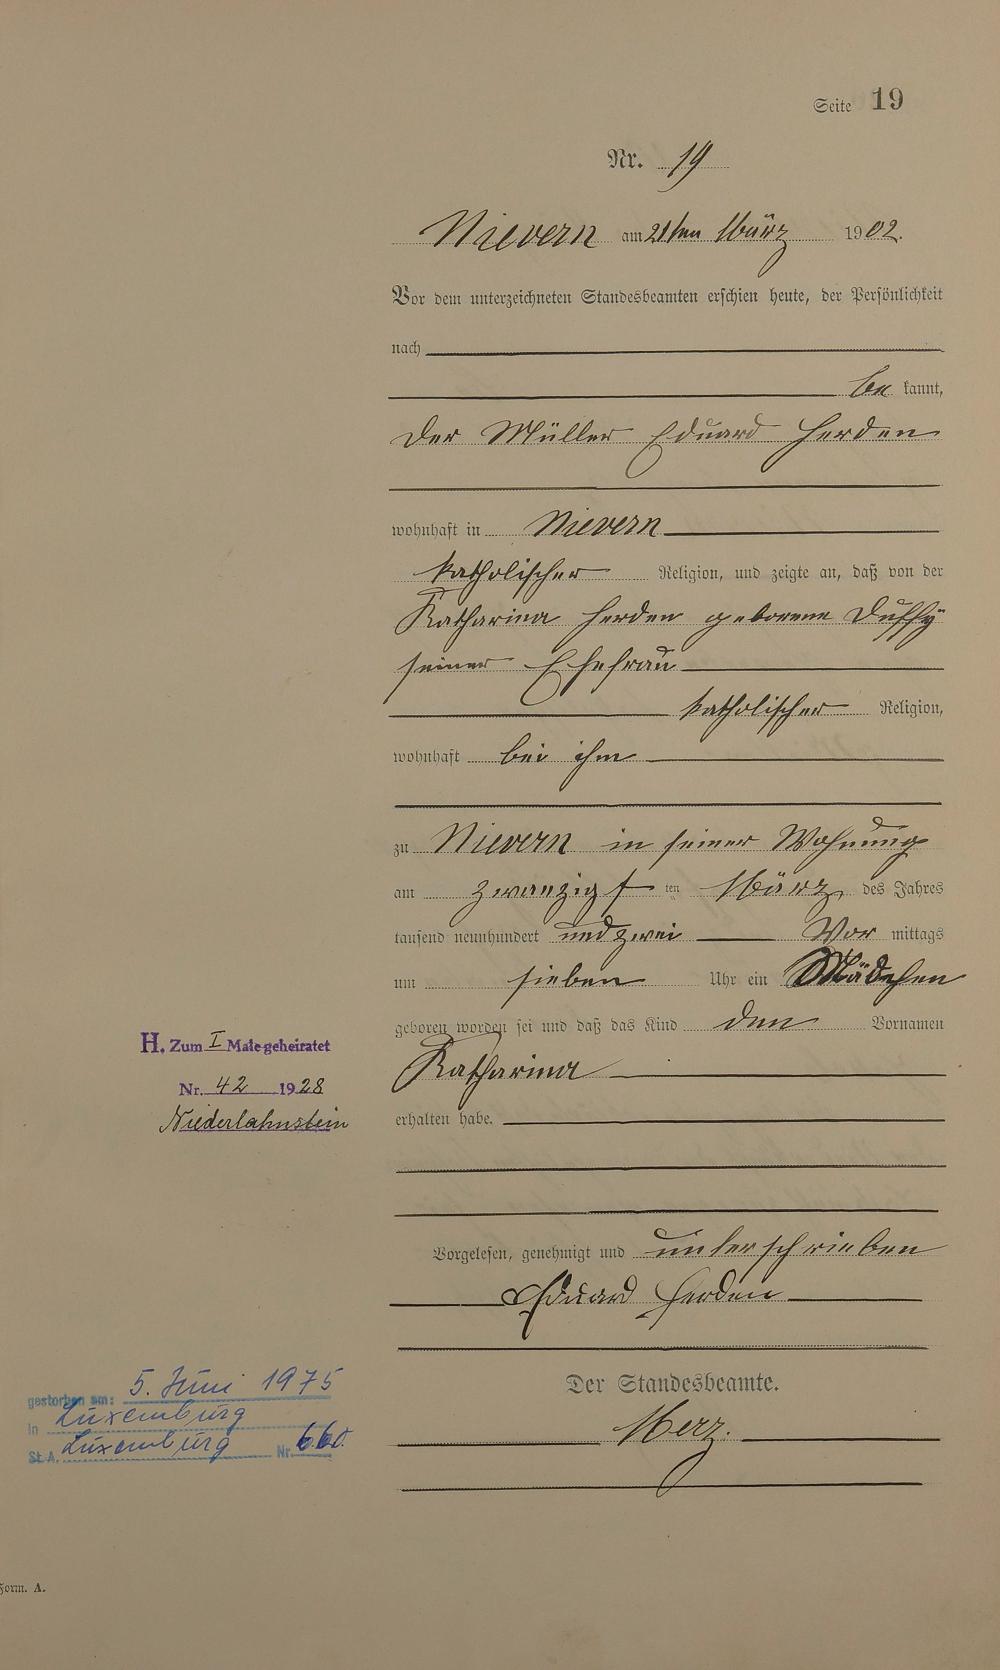 Seite 19
Nr. 19
Nievern am 21ten März 1902.
Vor dem unterzeichneten Standesbeamten erschien heute, der Persönlichkeit
nach
be kannt,
Der Müller Eduard Herden
wohnhaft in Nievern
katholischer Religion, und zeigte an, daß von der
Katharina Herden geborene Duffy
seiner Ehefrau
katholischer Religion,
wohnhaft bei ihm
zu Nievern in seiner Wohnung
am zwanzigsten März des Jahres
tausend neunhundert und zwei Vor mittags
um sieben Uhr ein Mädchen
geboren worden sei und daß das Kind den Vornamen
H. Zum I Male geheiratet
Katharina
Nr. 42 1928
Niederlahnstein
erhalten habe.
Vorgelesen, genehmigt und unterschrieben
Eduard Herden
Der Standesbeamte.
gestorben am: 5. Juni 1975
in Luxemburg
Merz.
St. A. Luxemburg Nr. 660.
Form. A.